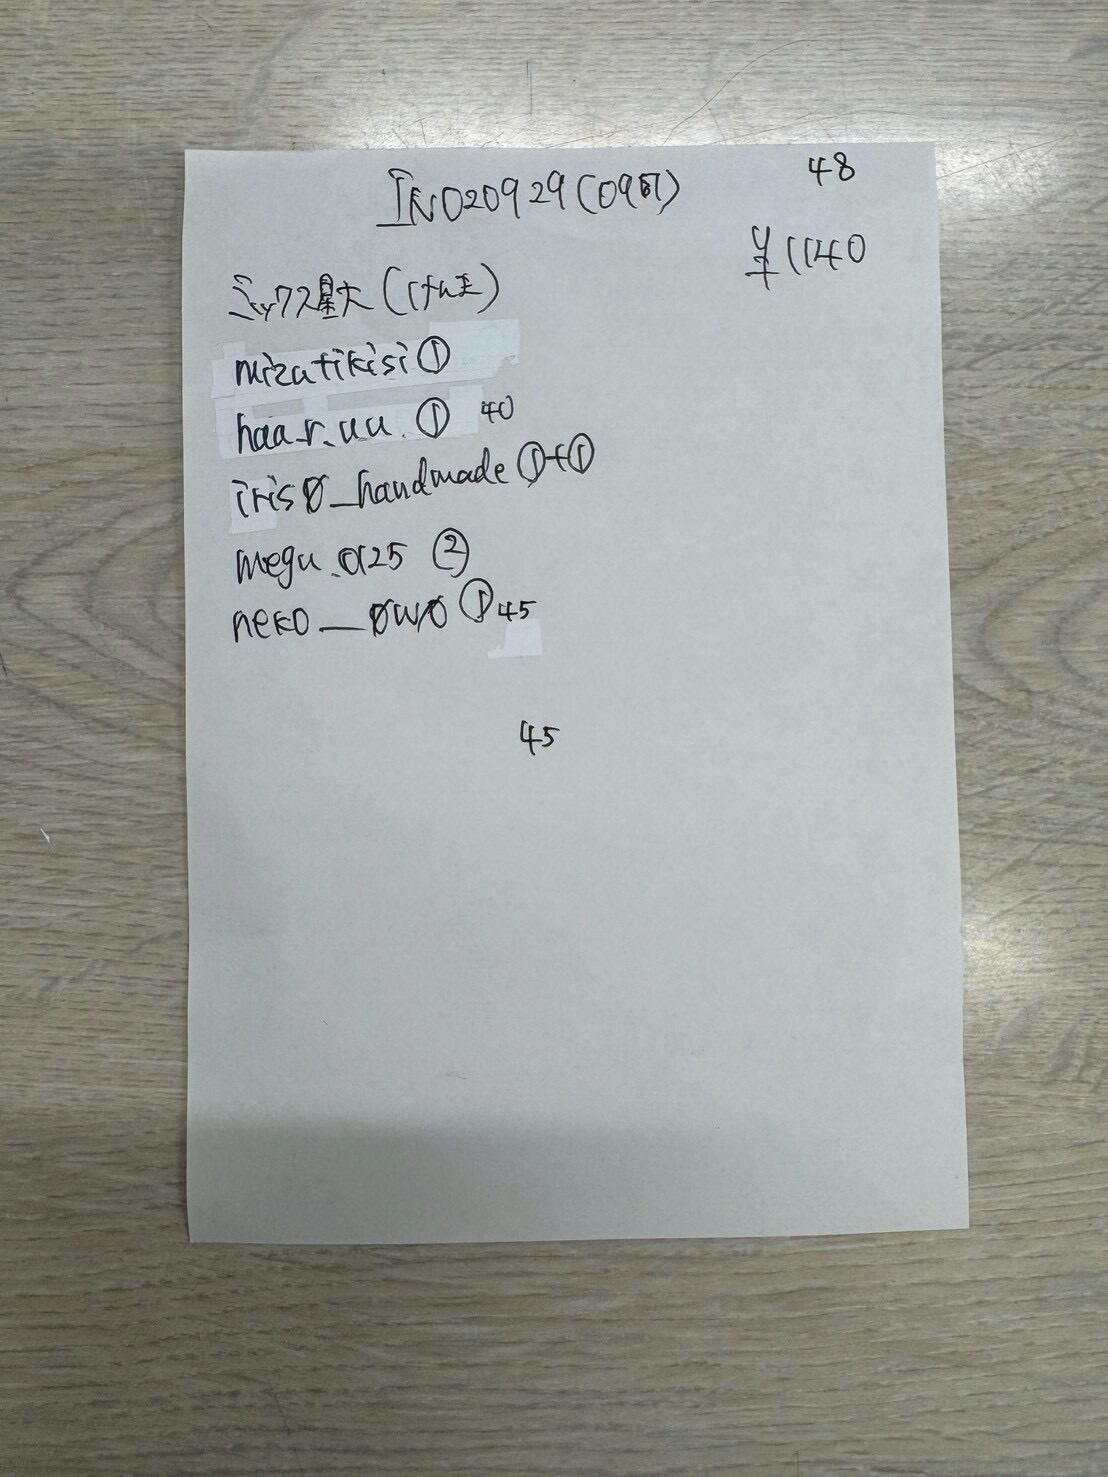 IN020929(09の)
48
¥1140
ミックス量大(けんま)
mizutikisi①
haa_r.uu.① 40
iris0_handmade①+①
megu.0125 ②
neko__0w0①45
45